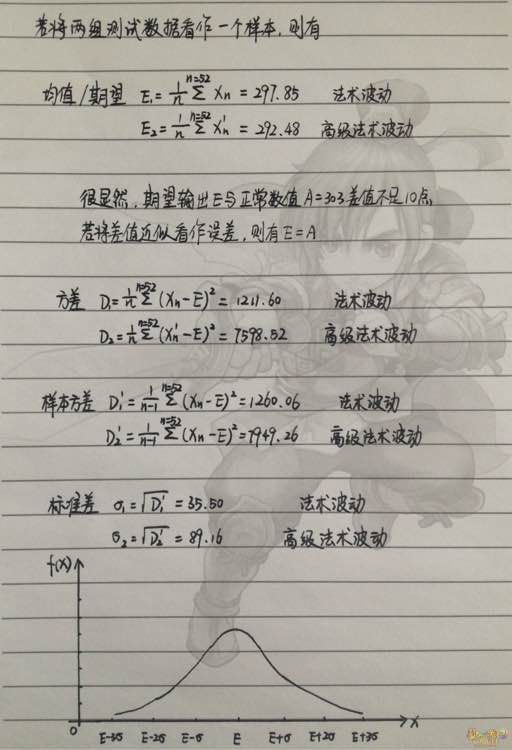 若将两组测试数据看作一个样本，则有
均值/期望 E₁=1/n Σ^{n=52} Xn = 297.85 法术波动
E₂=1/n Σ^{n=52} Xn' = 292.48 高级法术波动
很显然，期望输出E与正常数值A=303差值不足10点
若将差值近似看作误差，则有E=A
方差 D₁=1/n Σ^{n=52} (Xn-E)² = 1211.60 法术波动
D₂=1/n Σ^{n=52} (Xn'-E)² = 7598.52 高级法术波动
样本方差 D₁'=1/(n-1) Σ^{n=52} (Xn-E)² = 1260.06 法术波动
D₂'=1/(n-1) Σ^{n=52} (Xn-E)² = 7949.26 高级法术波动
标准差 σ₁=√D₁' = 35.50 法术波动
σ₂=√D₂' = 89.16 高级法术波动
f(x)
0 E-3σ E-2σ E-σ E E+σ E+2σ E+3σ X